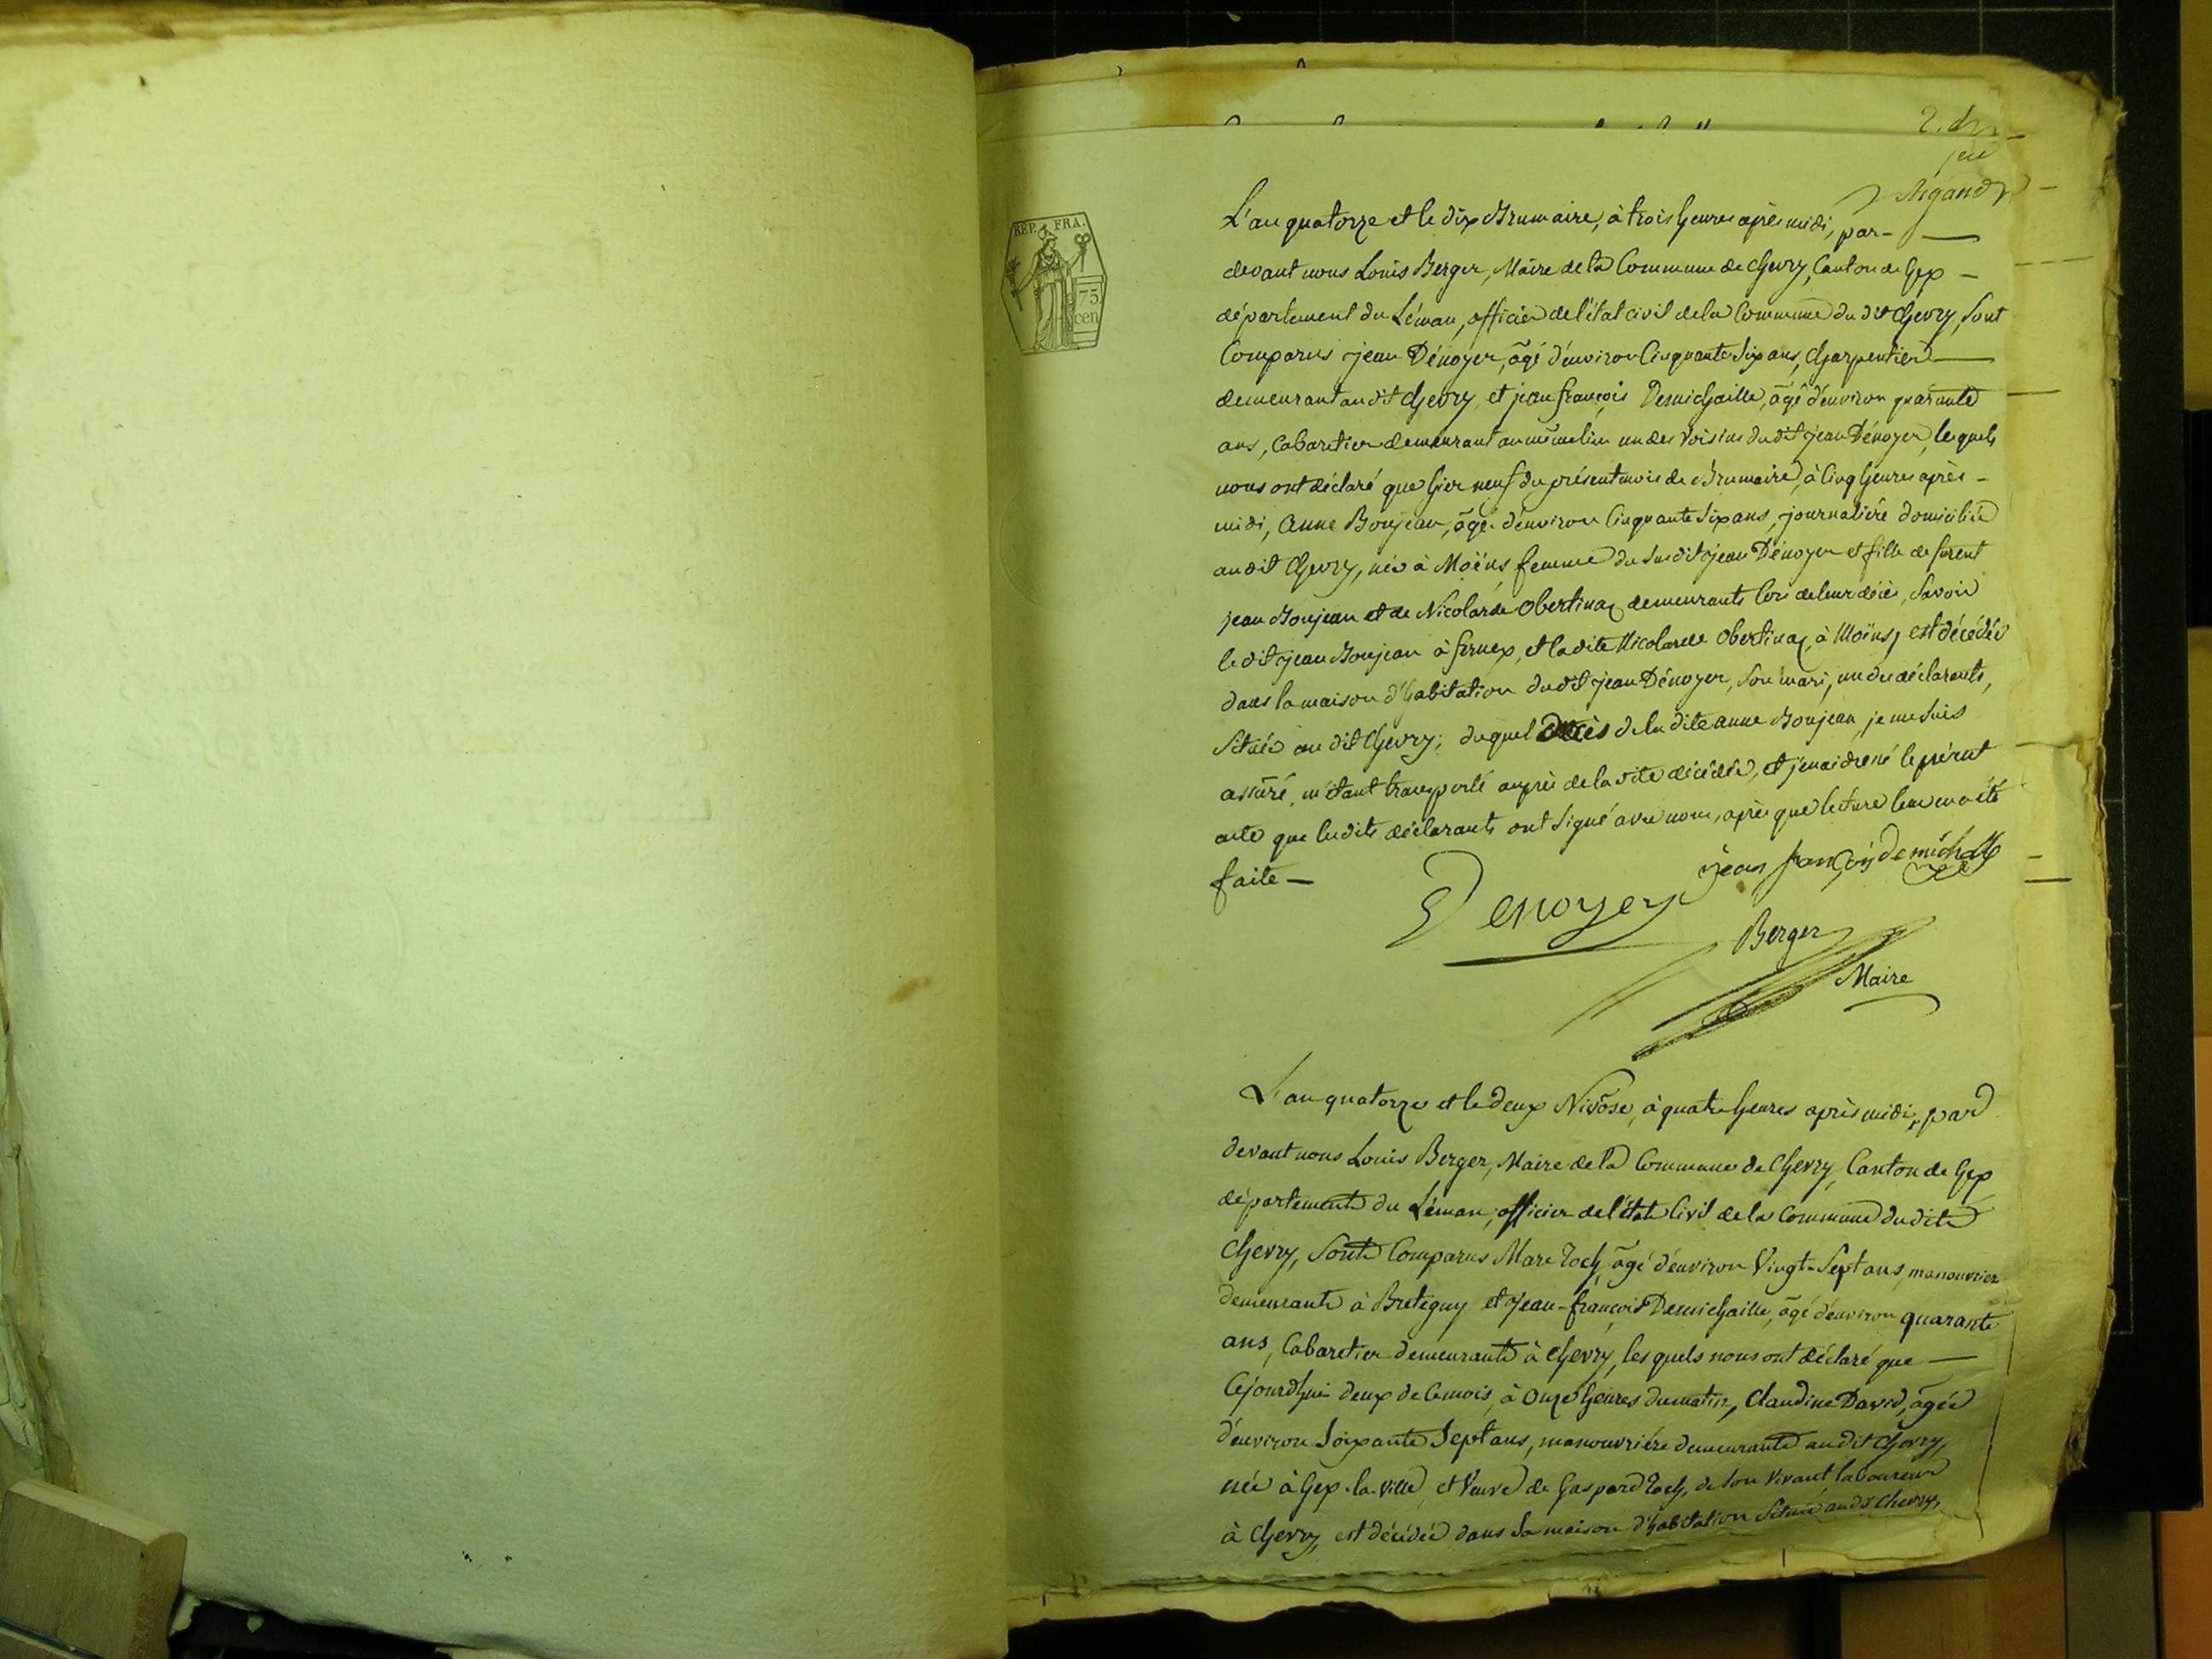 2. d
Rigand
REP. FRA.
75
cen
L'an quatorze et le dix Brumaire, à trois heures après midi, par-
devant nous Louis Berger, Maire de la Commune de Chevry, Canton de Gex -
département du Léman, officier de l'état civil de la Commune du dit Chevry, sont
Comparus jean Dénoyer, âgé d'environ Cinquante six ans, Charpentier
demeurant au dit Chevry, et jean françois Demichaille, âgé d'environ quarante
ans, Cabaretier demeurant au même lieu un des voisins du dit jean Dénoyer, lesquels
nous ont déclaré que hier neuf du présent mois de Brumaire, à Cinq heures après -
midi, Anne Boujean, âgée d'environ Cinquante six ans, journalière domiciliée
au dit Chevry, née à Moëns, femme du susdit jean Dénoyer et fille de furent
jean Boujean et de Nicolarde Obertinaz demeurants lors de leur décès, savoir
le dit jean Boujean à fernex, et la dite Nicolarde Obertinaz, à Moëns, est décédée
dans la maison d'habitation du dit jean Dénoyer, son mari, un des déclarants,
située au dit Chevry; duquel décès de la dite anne Boujean, je me suis
assuré, m'étant transporté auprès de la dite décédée, et j'en ai dressé le présent
acte que lesdits déclarants ont signé avec nous, après que lecture leur en a été
faite —
jean françois demichalle
Denoyer
Berger
Maire
L'an quatorze et le deux Nivôse, à quatre heures après midi, par
devant nous Louis Berger, Maire de la Commune de Chevry, Canton de Gex
département du Léman, officier de l'état Civil de la Commune dudit
Chevry, sont Comparus Marc Roch, âgé d'environ Vingt-Sept ans, manouvrier
demeurant à Bretigny et Jean-françois Demichaille, âgé d'environ quarante
ans, Cabaretier demeurant à Chevry, lesquels nous ont déclaré que —
Cejourd'hui deux de ce mois, à Onze heures du matin, Claudine David, âgée
d'environ Soixante Sept ans, manouvrière demeurante au dit Chevry,
née à Gex-la-ville, et Veuve de Gaspard Roch, de son vivant laboureur
à Chevry, est décédée dans sa maison d'habitation située au dt Chevry,